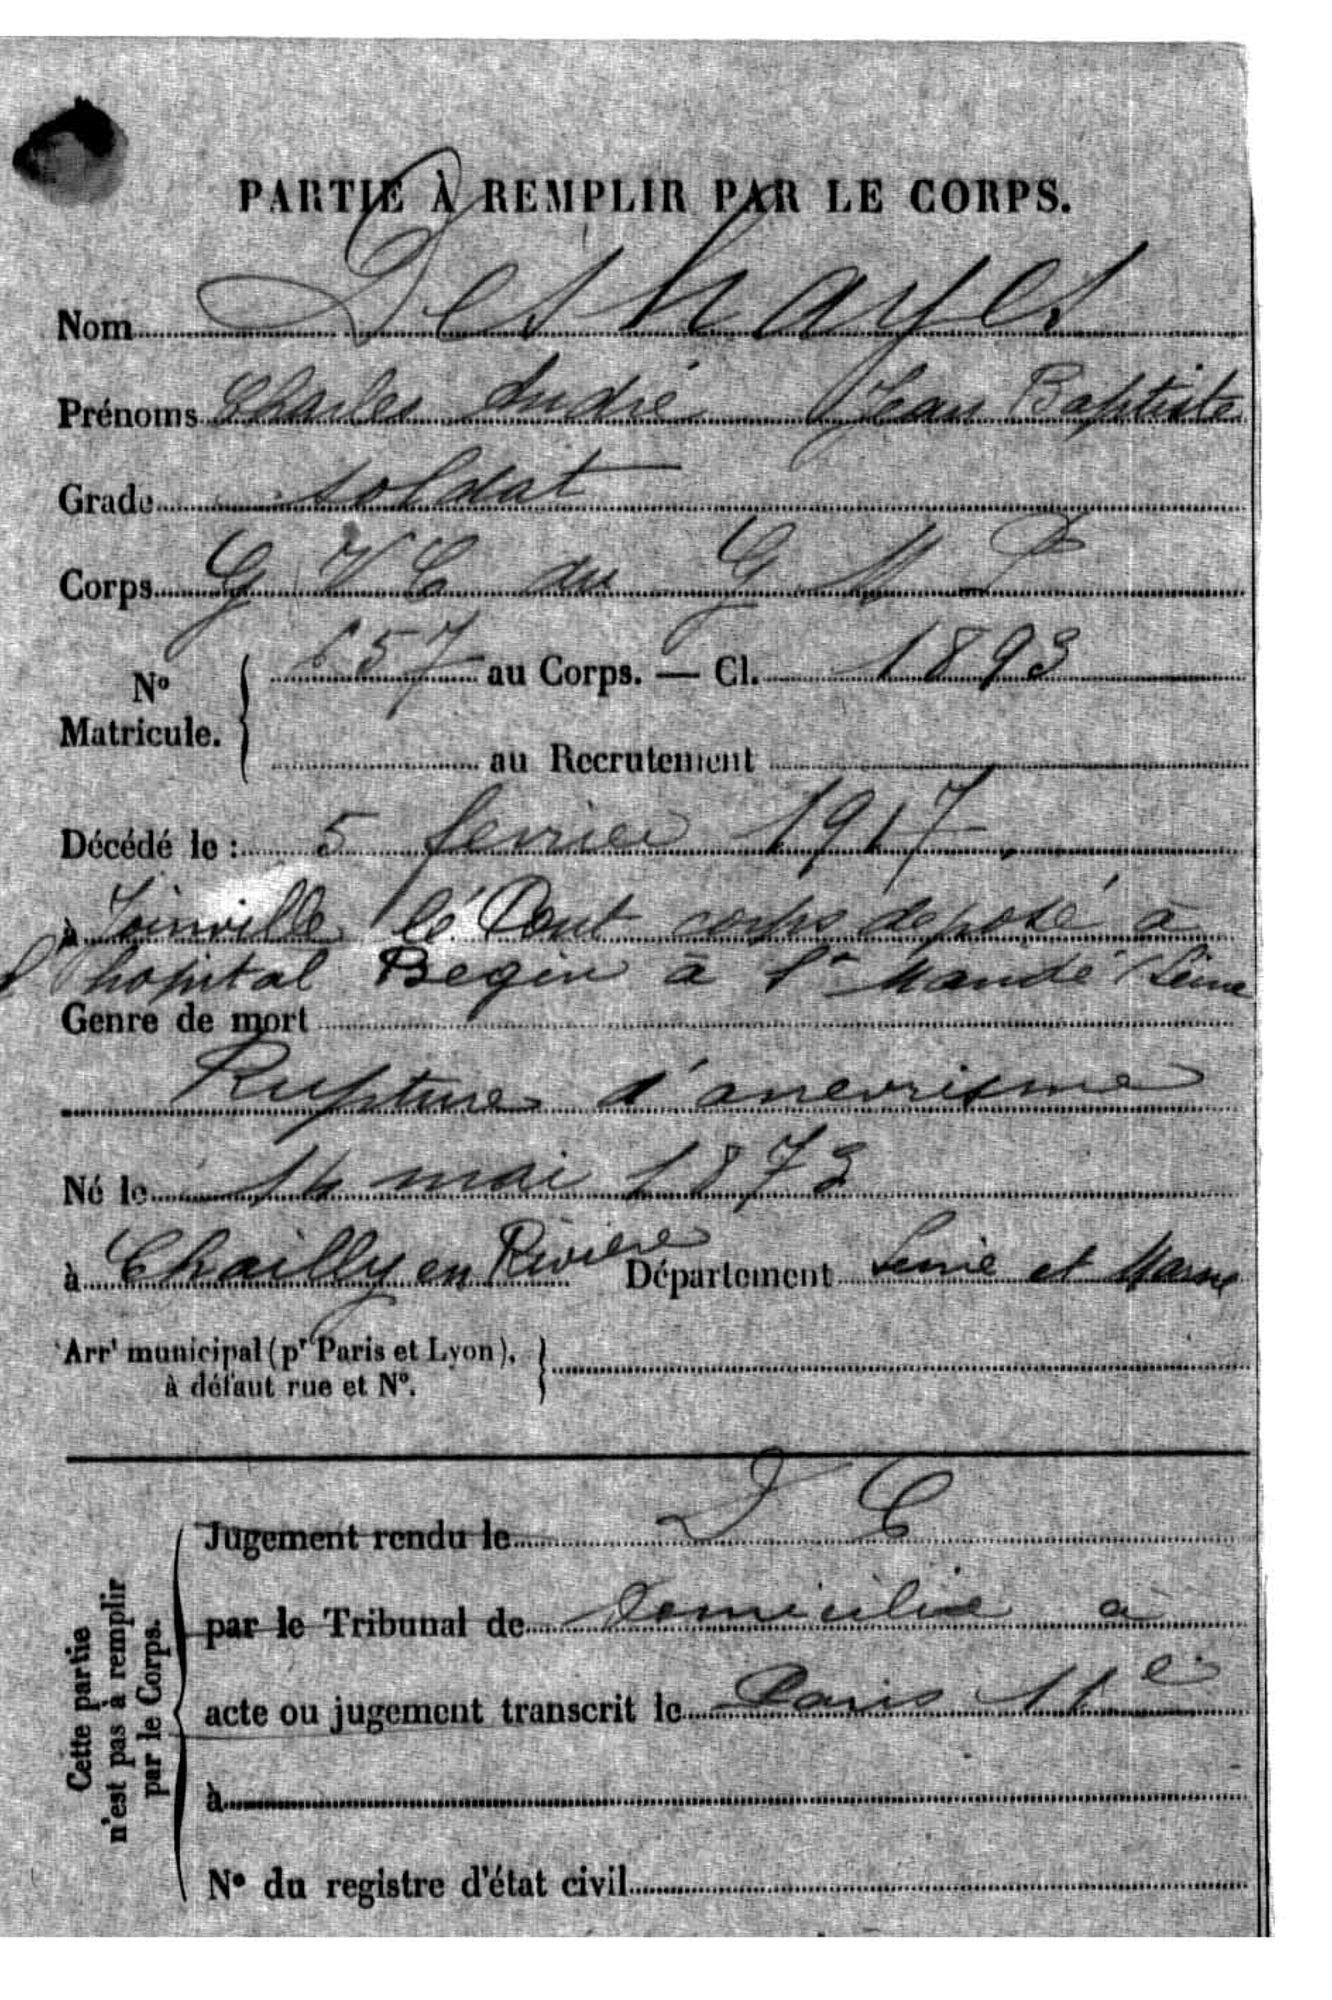 PARTIE À REMPLIR PAR LE CORPS.
Nom Deshayes
Prénoms Charles André Jean Baptiste
Grade soldat
Corps G V C du G M P
657 au Corps. — Cl. 1893
N° Matricule.
au Recrutement
Décédé le : 5 fevrier 1917
à Joinville le Pont corps deposé à
l'hopital Begin à St Mandé (Seine
Genre de mort
Rupture d'anevrisme
Né le 14 mai 1873
à Chailly en Riviere Département Seine et Marne
Arrt municipal (pr Paris et Lyon),
à défaut rue et N°.
Jugement rendu le D C
par le Tribunal de Domicilié à
acte ou jugement transcrit le Paris 11e
à
N° du registre d'état civil
Cette partie
n'est pas à remplir
par le Corps.